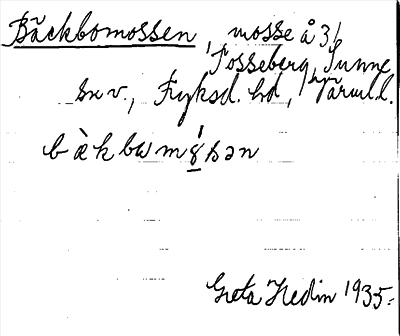 Bäckbomossen, mosse å 3/1
Fosseberg, Sunne
sn v., Fryksd. hd, Värml.
bæ̀kbωmǫ́sən
Greta Hedin 1935.